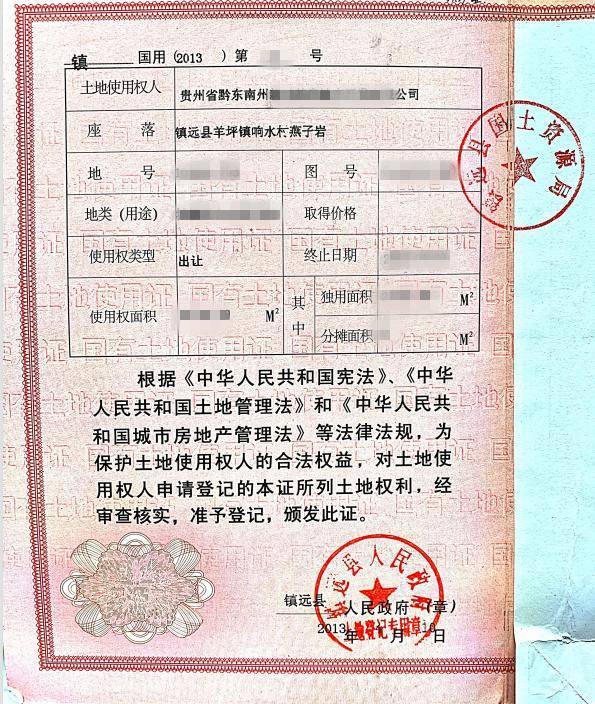 镇 国用 (2013 ) 第 号
土地使用权人 贵州省黔东南州 公司
座 落 镇远县羊坪镇响水村燕子岩
地 号 图 号
地类 (用途) 取得价格
使用权类型 出让 终止日期
使用权面积 M² 其中 独用面积 M²
分摊面积 M²
根据《中华人民共和国宪法》、《中华
人民共和国土地管理法》和《中华人民共
和国城市房地产管理法》等法律法规，为
保护土地使用权人的合法权益，对土地使
用权人申请登记的本证所列土地权利，经
审查核实，准予登记，颁发此证。
镇远县 人民政府 (章)
2013 年 月 日
镇远县人民政府
土地登记专用章
镇远县国土资源局
国有土地使用证